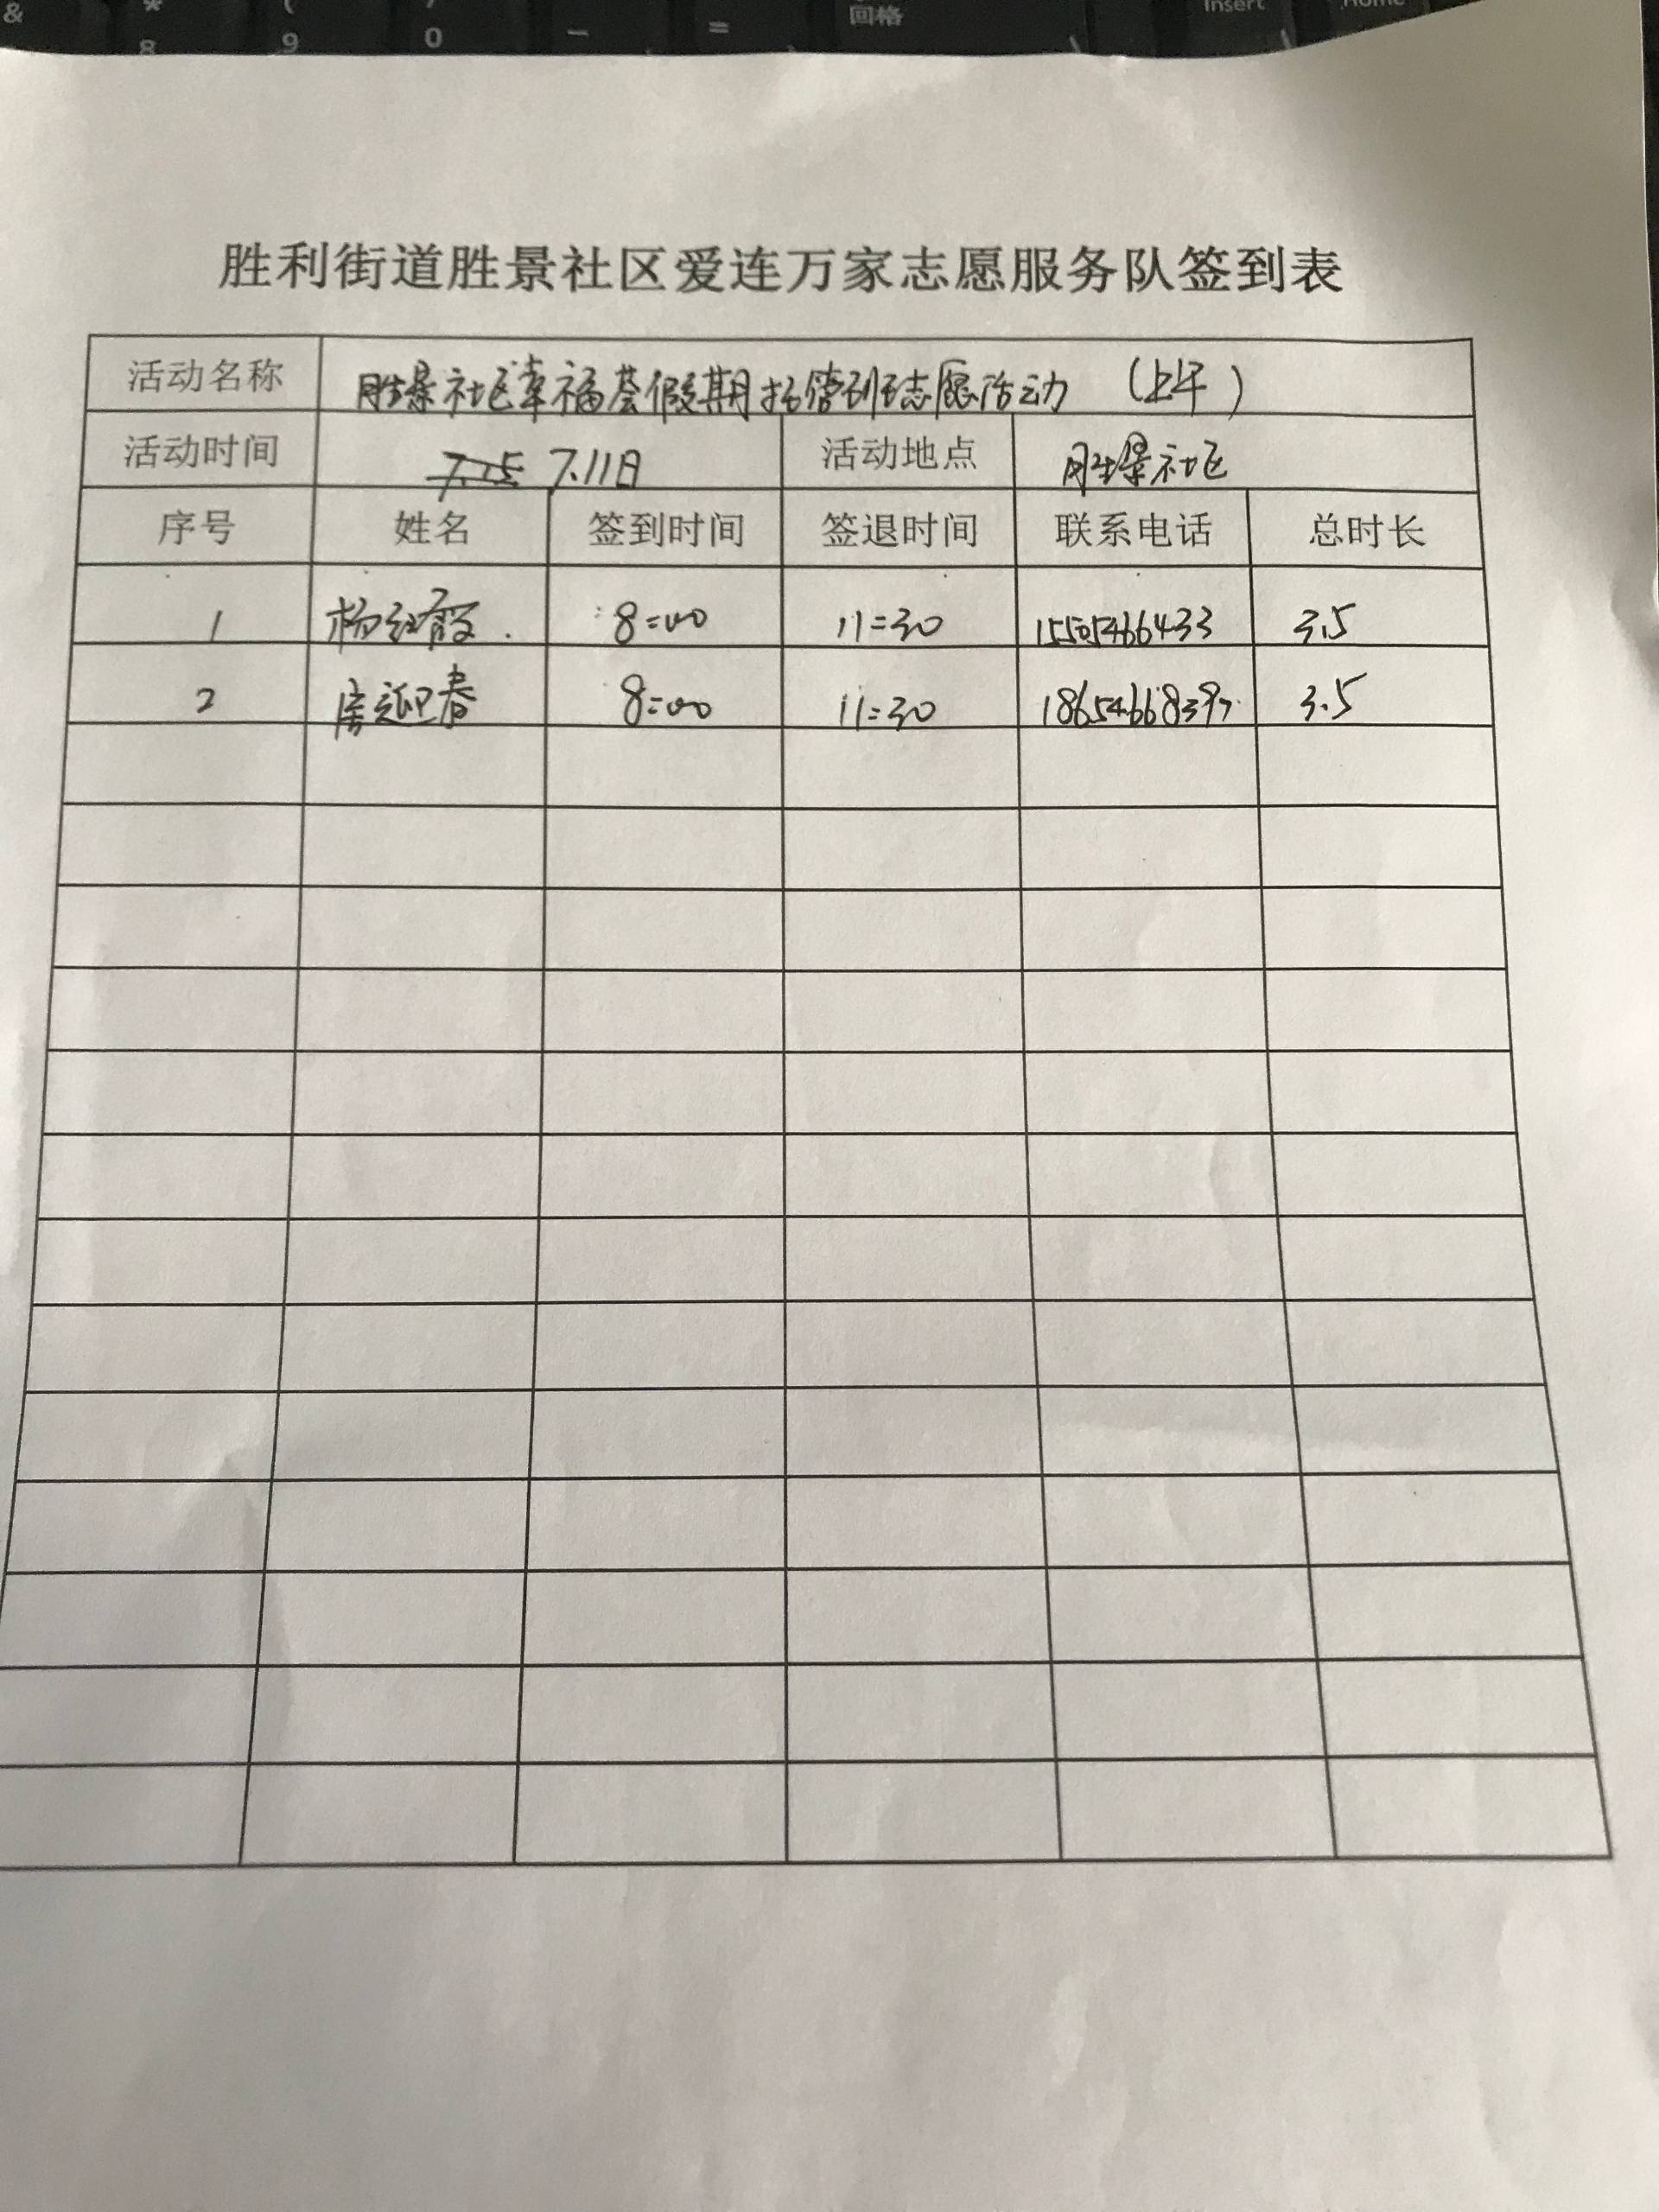 & * ( )
8 9 0 - = 回格 Insert Home
胜利街道胜景社区爱连万家志愿服务队签到表
活动名称 胜景社区幸福荟假期托管班志愿活动 (上午)
活动时间 7.11日 活动地点 胜景社区
序号 姓名 签到时间 签退时间 联系电话 总时长
1 杨红霞 8:00 11:30 15505466433 3.5
2 房迎春 8:00 11:30 18654668397 3.5